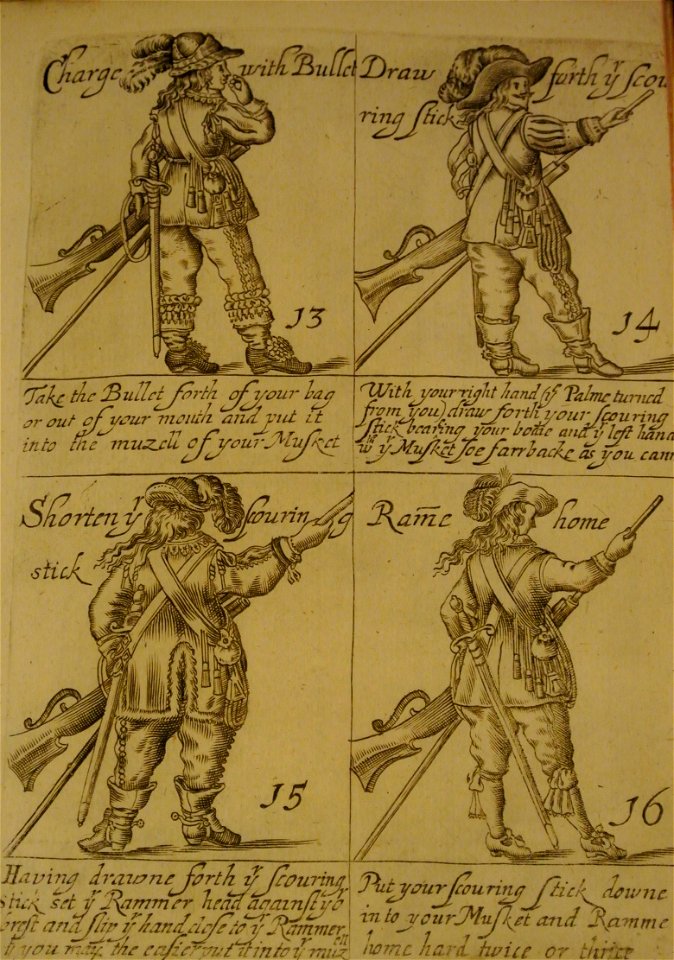 Charge with Bullet
13
Take the Bullet forth of your bag
or out of your mouth and put it
into the muzell of your Musket
Draw forth yͬ Scou
ring stick
14
With your right hand (yͤ Palme turned
from you) draw forth your scouring
stick bearing your bodie and yͬ left hand
yͬ Musket soe farrbacke as you cann
Shorten yͬ scouring
stick
15
Having drawne forth yͬ scouring
stick set yͬ Rammer head against yoͬ
brest and slip yͬ hand close to yͬ Rammer
you may the easier put it into yͬ muzell
Ram̄e home
16
Put your scouring stick downe
into your Musket and Ramme
home hard twice or thrice